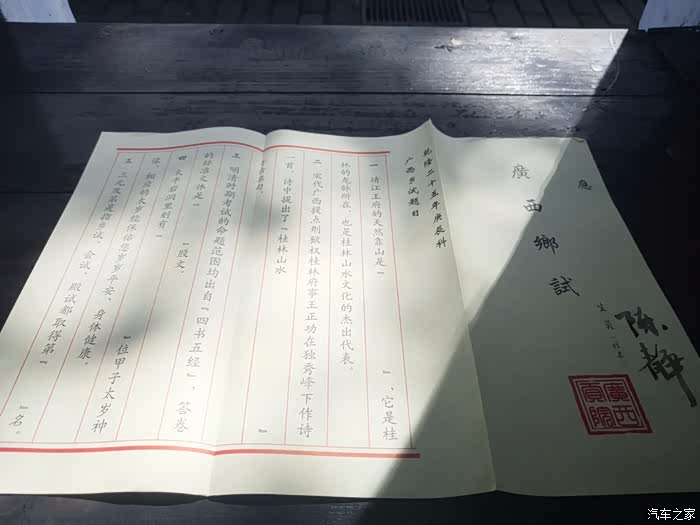 應
廣西鄉試
陈静
廣西
貢院
乾隆二十五年庚辰科
广西乡试题目
一 靖江王府的天然靠山是『 』，它是桂
林的龙脉所在，也是桂林山水文化的杰出代表。
二 宋代广西提点刑狱权桂林府事王正功在独秀峰下作诗
一首，诗中提出了『桂林山水 』
三 明清时期考试的命题范围均出自『四书五经』，答卷
的标准文体是『 』股文。
四 太平岩洞里刻有『 』位甲子太岁神
像，相应的太岁能保佑您岁岁平安、身体健康。
五 三元及第是指乡试、会试、殿试都取得第『 』名。
汽车之家